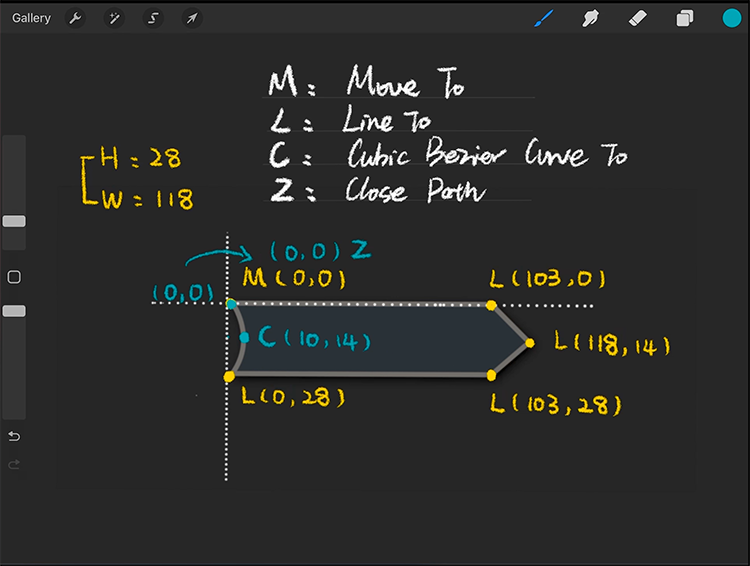 Gallery
M: Move To
L: Line To
C: Cubic Bezier Curve To
Z: Close Path
H = 28
W = 118
(0,0) Z
(0,0)
M(0,0)
L(103,0)
C(10,14)
L(118,14)
L(0,28)
L(103,28)